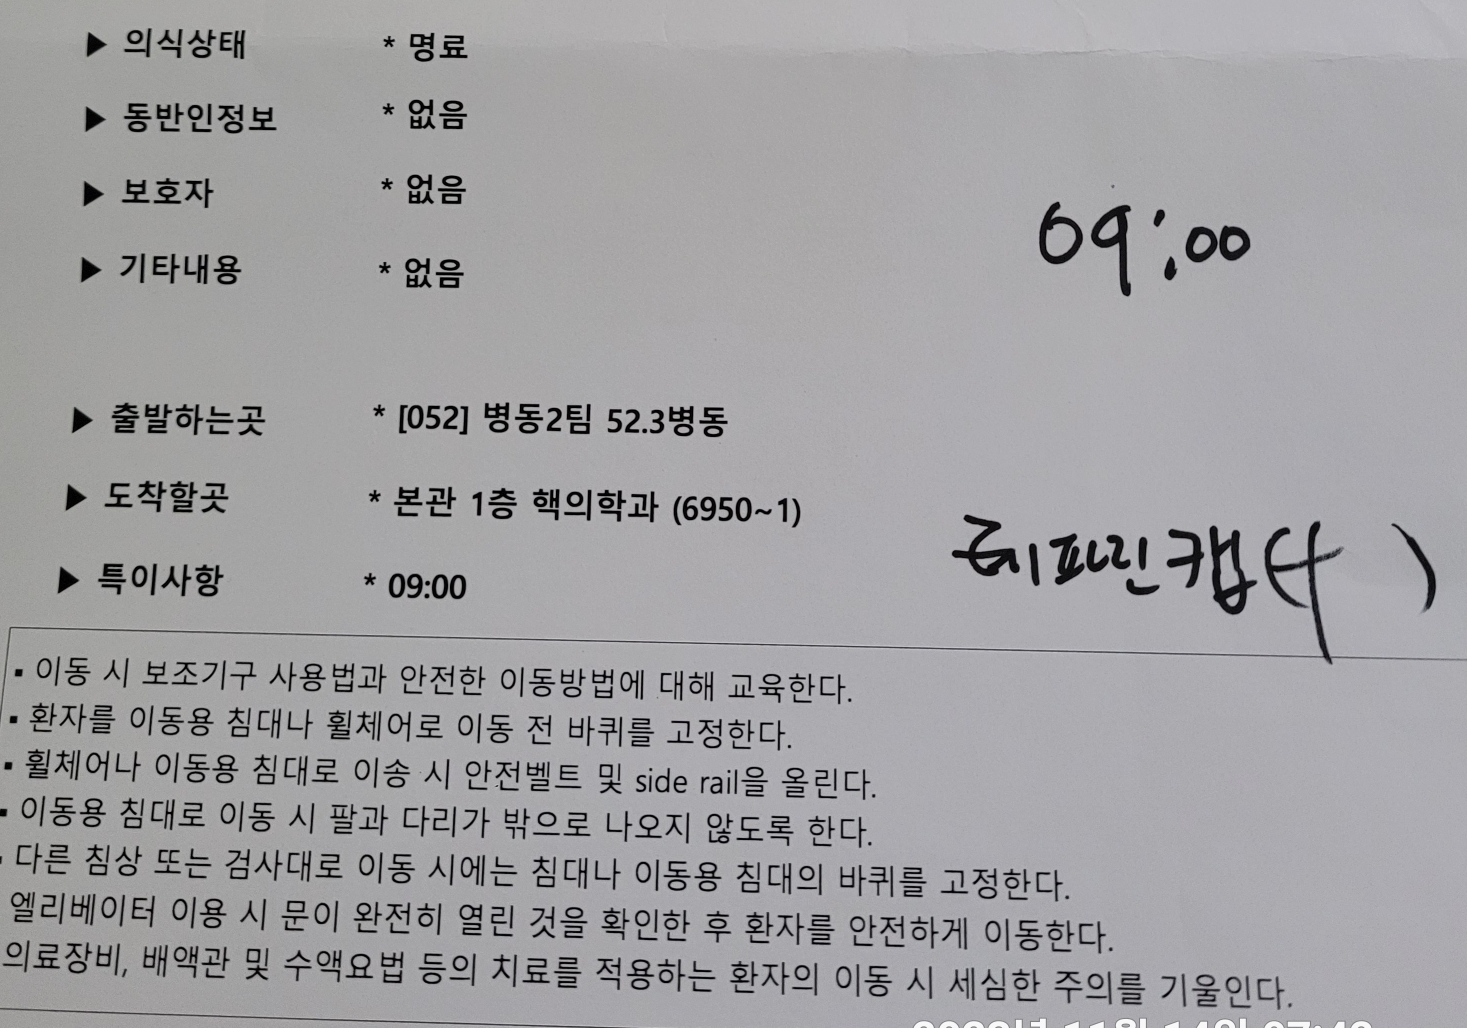 ▶ 의식상태 * 명료
▶ 동반인정보 * 없음
▶ 보호자 * 없음
▶ 기타내용 * 없음
09:00
▶ 출발하는곳 * [052] 병동2팀 52.3병동
▶ 도착할곳 * 본관 1층 핵의학과 (6950~1)
▶ 특이사항 * 09:00
헤파린캡(+ )
▪ 이동 시 보조기구 사용법과 안전한 이동방법에 대해 교육한다.
▪ 환자를 이동용 침대나 휠체어로 이동 전 바퀴를 고정한다.
▪ 휠체어나 이동용 침대로 이송 시 안전벨트 및 side rail을 올린다.
▪ 이동용 침대로 이동 시 팔과 다리가 밖으로 나오지 않도록 한다.
다른 침상 또는 검사대로 이동 시에는 침대나 이동용 침대의 바퀴를 고정한다.
엘리베이터 이용 시 문이 완전히 열린 것을 확인한 후 환자를 안전하게 이동한다.
의료장비, 배액관 및 수액요법 등의 치료를 적용하는 환자의 이동 시 세심한 주의를 기울인다.